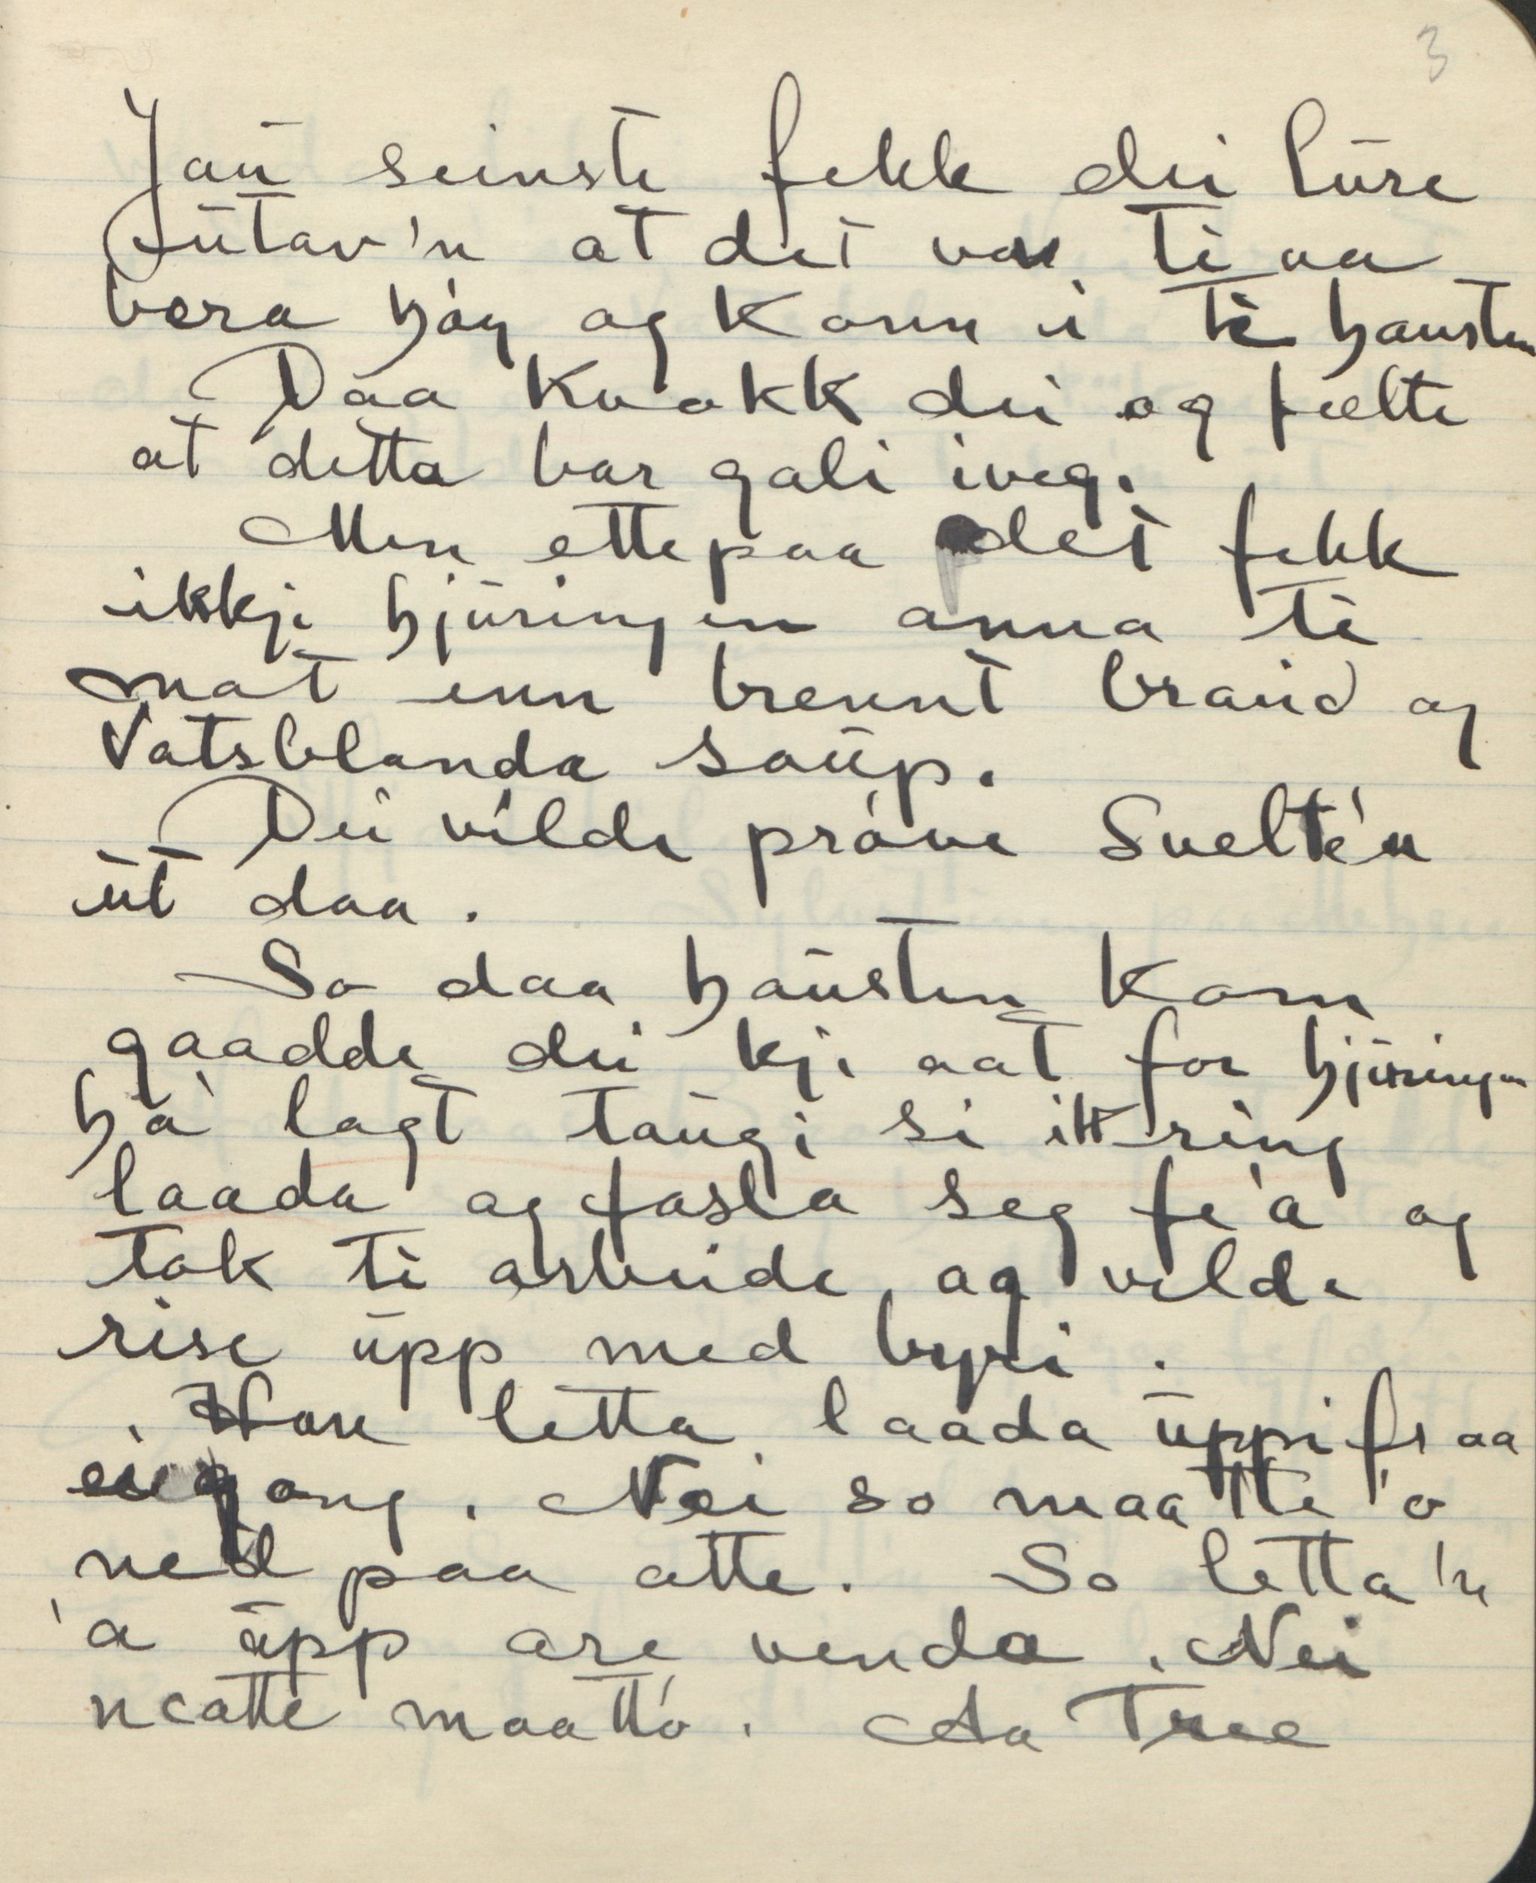 3
Jau seinste fekk dei lure
utav'n at det var ti aa
bera håy og konn i te hausten
Daa kvakk dei og fælte
at detta bar gali iveg.
Men ettepaa det fekk
ikkje hjuringen anna ti
mat enn brennt brau'd og
Vatsblanda saup.
Dei vilde prøve Svelte'n
ut daa.
So daa hausten kom
gaadde dei kje aat for hjuringen
ha' lagt taugi si ikring
laada og fasla seg te'a og
tok ti arbeide, og vilde
rise upp med byri.
Han letta laada uppifraa
ein gong. Nei so maatte'o
ned paa atte. So letta'n
'a upp are venda. Nei
neatte maatt'o. Aa Tree